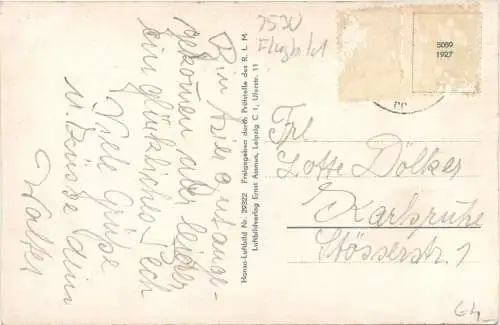 Bin hier gut ange-
kommen aber leider
ein glückliches Pech
Viele Grüße
u. Küsse dein
Walter
7530
Flugbild
Hansa-Luftbild Nr. 29322 Freigegeben durch Prüfstelle des R. L. M.
Luftbildverlag Ernst Assmus, Leipzig C 1, Uferstr. 11
5089
1927
Frl.
Lotte Dölker
Karlsruhe
Stösserstr. 1